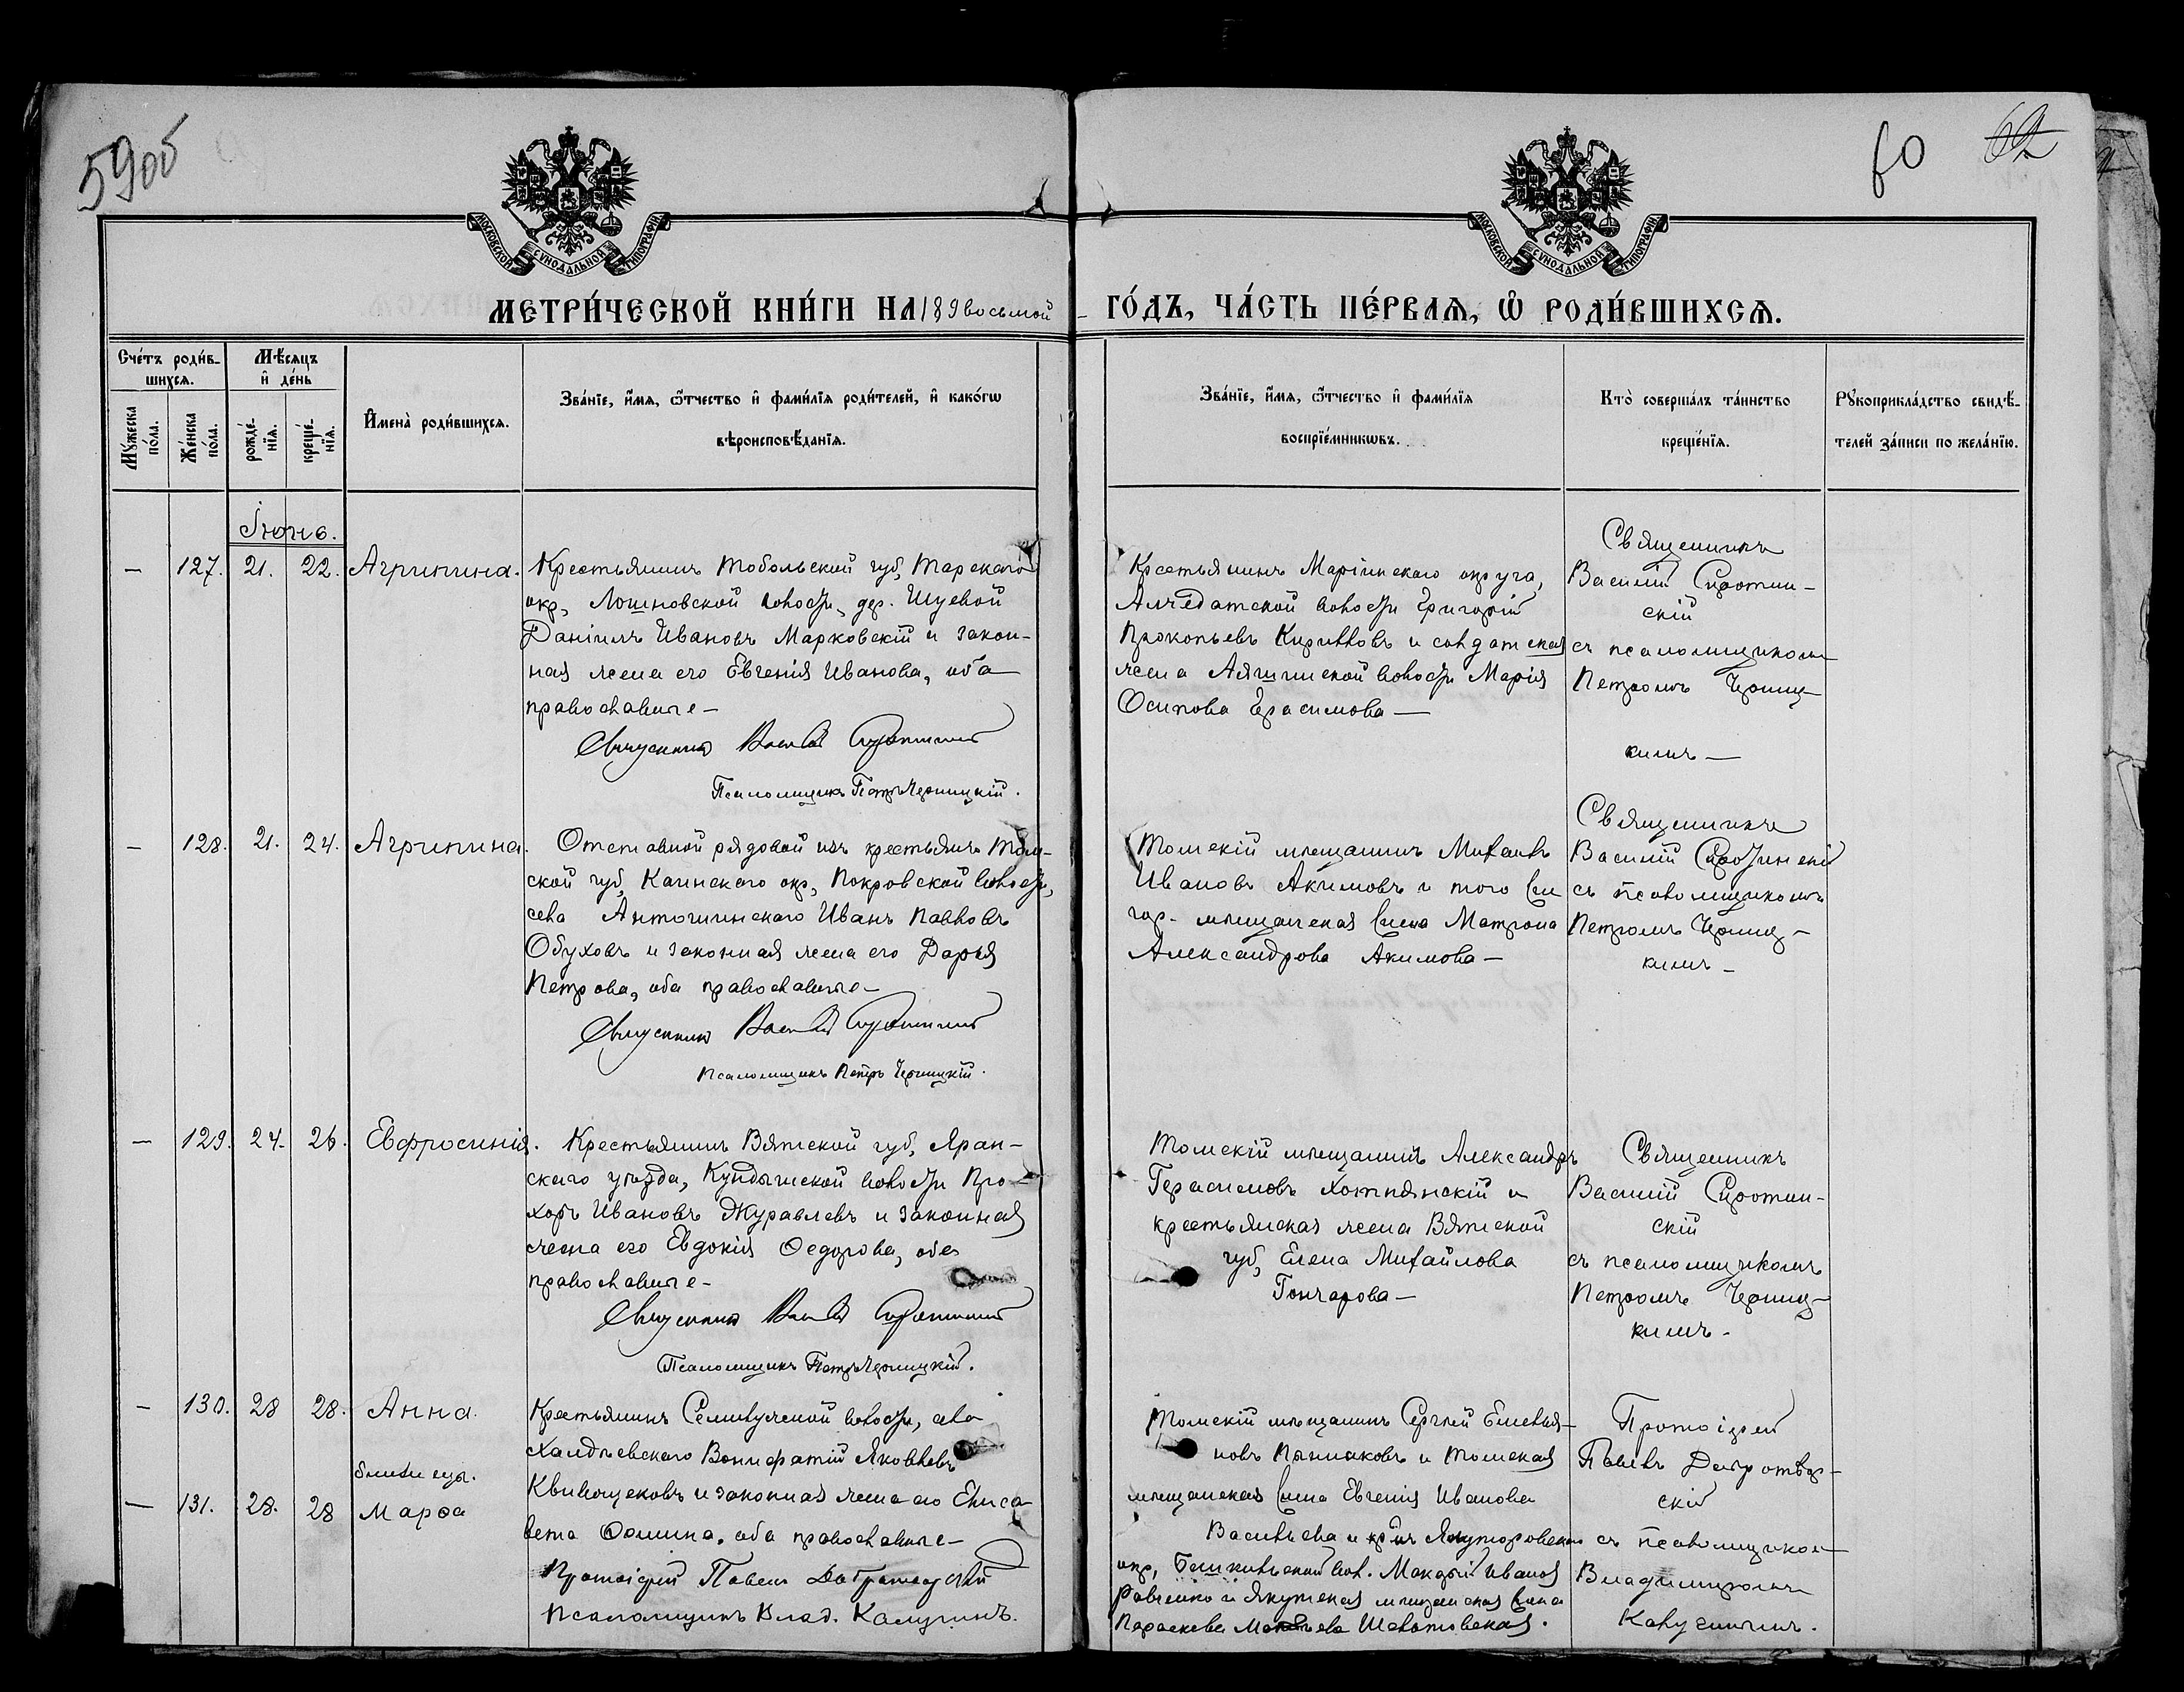 59об
60
62
МОСКОВСКОЙ СѴНОДАЛЬНОЙ ТИПОГРАФІИ
МОСКОВСКОЙ СѴНОДАЛЬНОЙ ТИПОГРАФІИ
МЕТРИ́ЧЕСКОЙ КНИ́ГИ НА 189восьмой ГО́ДЪ, ЧА́СТЬ ПЕ́РВАѦ, Ѡ҆ РОДИ́ВШИХСѦ.
Сче́тъ роди́в-
шихсѧ.
Мꙋ́жеска по́ла.
Же́нска по́ла.
Мѣ́сѧцъ
и҆ де́нь
рожде́-
нїѧ.
креще́-
нїѧ.
И҆мена̀ роди́вшихсѧ.
Зва́нїе, и҆́мѧ, ѻ҆́тчество и҆ фами́лїѧ роди́телей, и҆ како́гѡ
вѣроисповѣ́данїѧ.
Зва́нїе, и҆́мѧ, ѻ҆́тчество и҆ фами́лїѧ
воспрїе́мникѡвъ.
Кто̀ соверша́лъ та́инство
креще́нїѧ.
Рꙋкоприкла́дство свидѣ́-
телей за́писи по жела́нїю.
Іюнь.
— 127. 21. 22. Агрипина.
Крестьянинъ Тобольской губ, Тарскаго
окр, Логиновской волости, дер. Шуевой
Даніилъ Ивановъ Марковскій и закон-
ная жена его Евгенія Иванова, оба
православные —
Священникъ Василій Сиротинскій
Псаломщикъ Петръ Черницкій.
Крестьянинъ Маріинскаго округа,
Алчедатской волости Григорій
Прокопьевъ Кирилловъ и солдатская
жена волости Марія
Осипова Герасимова —
Священникъ
Василій Сиротин-
скій
съ псаломщикомъ
Петромъ Черниц-
кимъ —
— 128. 21. 24. Агрипина.
Отставной рядовой изъ крестьянъ Том-
ской губ, Каинскаго окр, Покровской волости,
села Антошинскаго Иванъ Павловъ
Обуховъ и законная жена его Дарья
Петрова, оба православные —
Священникъ Василій Сиротинскій
Псаломщикъ Петръ Черницкій.
Томскій мѣщанинъ Михаилъ
Ивановъ Акимовъ и того же
гор. мѣщанская жена Матрона
Александрова Акимова —
Священникъ
Василій Сиротинскій
съ псаломщикомъ
Петромъ Черниц-
кимъ —
— 129. 24. 26. Евфросинія.
Крестьянинъ Вятской губ, Яран-
скаго уѣзда, Кундышской волости Про-
хоръ Ивановъ Журавлевъ и законная
жена его Евдокія Ѳедорова, оба
православные —
Священникъ Василій Сиротинскій
Псаломщикъ Петръ Черницкій.
Томскій мѣщанинъ Александръ
Герасимовъ Хотнянскій и
крестьянская жена Вятской
губ, Елена Михайлова
Гончарова —
Священникъ
Василій Сиротин-
скій
съ псаломщикомъ
Петромъ Черниц-
кимъ —
— 130. 28 28. Анна.
близнецы.
— 131. 28. 28 Марѳа
Крестьянинъ Семилужной волости, села
Халдѣевскаго Вонифатій Яковлевъ
и законная жена его Елиса-
вета Ѳомина, оба православные —
Протоіерей Павелъ
Псаломщикъ Влад. Калугинъ.
Томскій мѣщанинъ Сергѣй Емельян-
новъ и Томская
мѣщанская жена Евгенія Иванова
Васильева и кр-нъ Ялуторовскаго
окр, вол. Макарій Ивановъ
и Якутская мѣщанская жена
Параскева
Протоіерей
Павелъ
скій
съ псаломщикомъ
Владиміромъ
Калугинымъ.